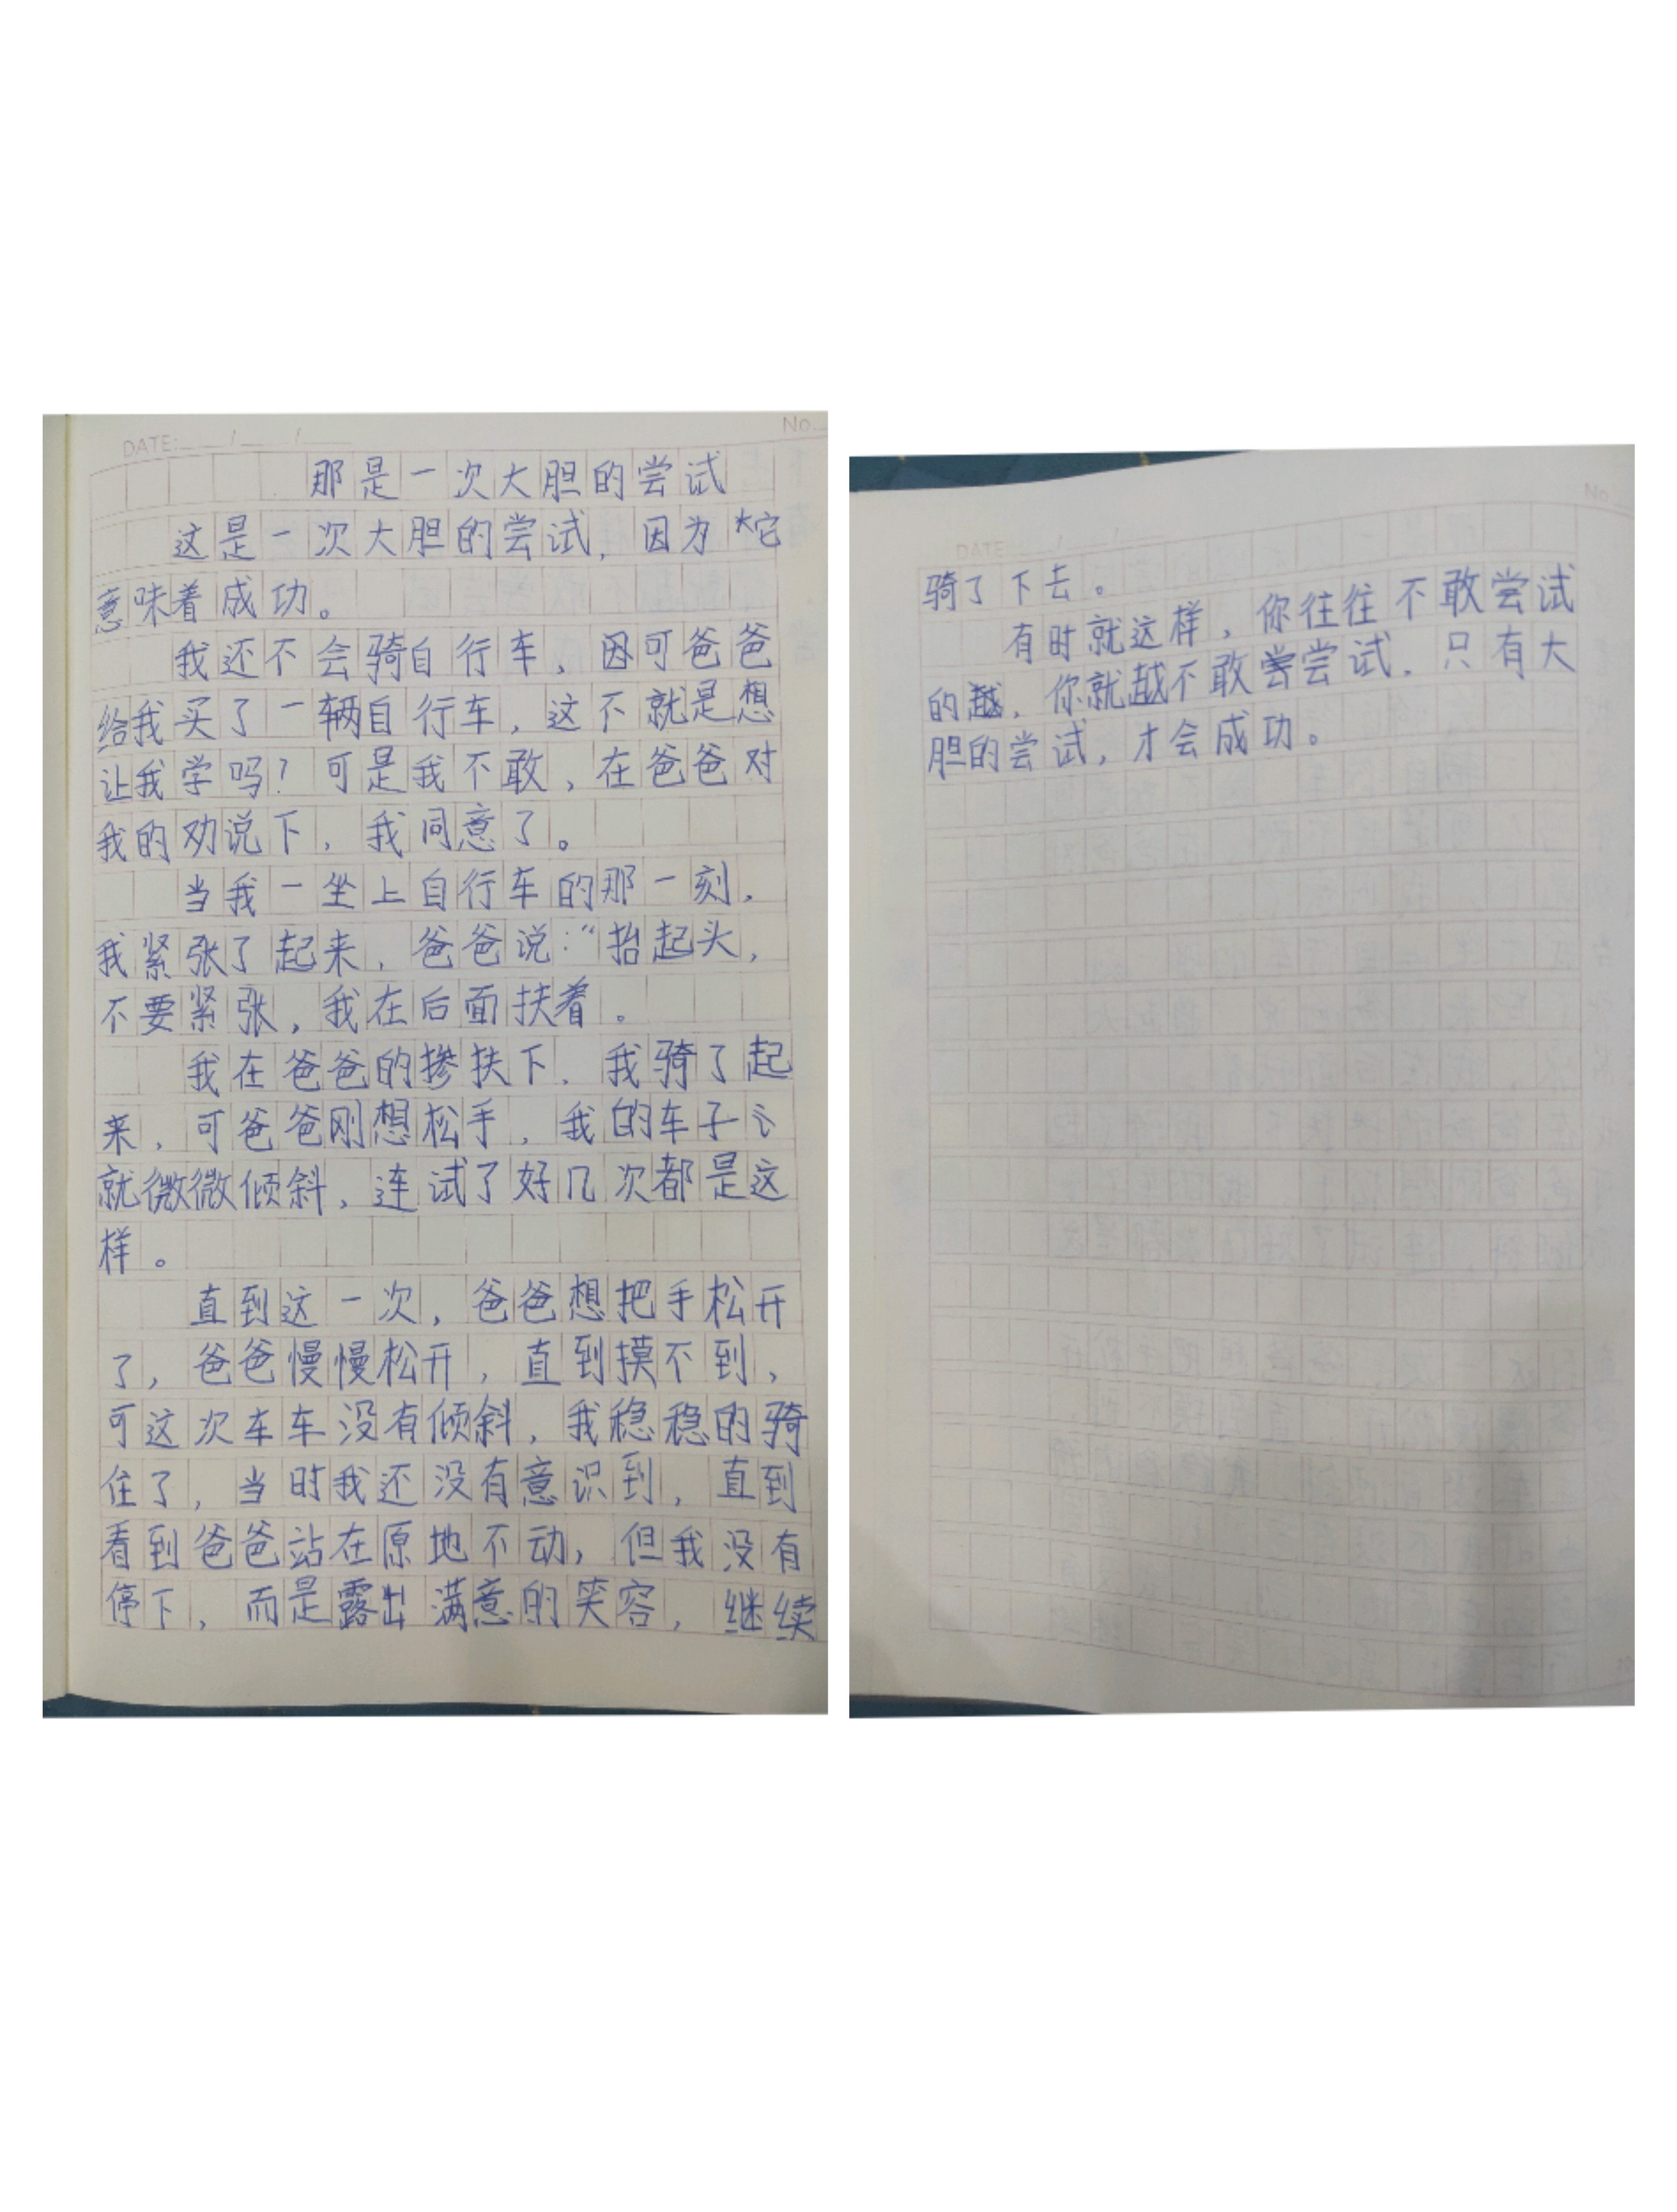 DATE: / /
No.
那是一次大胆的尝试
这是一次大胆的尝试，因为它
意味着成功。
我还不会骑自行车，因可爸爸
给我买了一辆自行车，这不就是想
让我学吗？可是我不敢，在爸爸对
我的劝说下，我同意了。
当我一坐上自行车的那一刻，
我紧张了起来，爸爸说：“抬起头，
不要紧张，我在后面扶着。
我在爸爸的搀扶下，我骑了起
来，可爸爸刚想松手，我的车子
就微微倾斜，连试了好几次都是这
样。
直到这一次，爸爸想把手松开
了，爸爸慢慢松开，直到摸不到，
可这次车车没有倾斜，我稳稳的骑
住了，当时我还没有意识到，直到
看到爸爸站在原地不动，但我没有
停下，而是露出满意的笑容，继续
DATE / /
No
骑了下去。
有时就这样，你往往不敢尝试
的越，你就越不敢尝尝试，只有大
胆的尝试，才会成功。